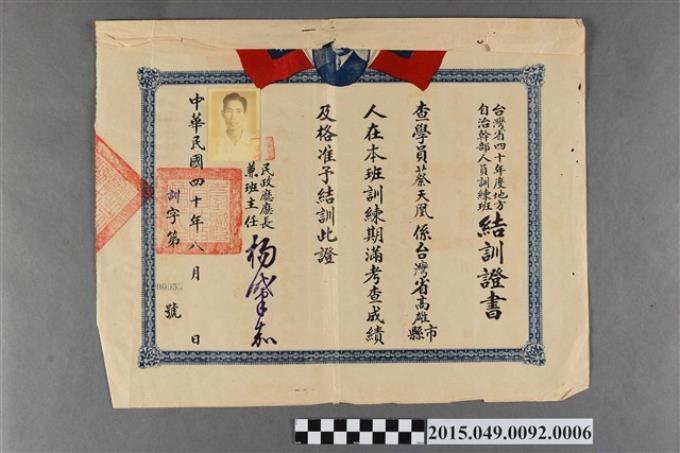 台灣省四十年度地方
自治幹部人員訓練班
結訓證書
查學員蔡天凰係台灣省高雄市縣
人在本班訓練期滿考查成績
及格准予結訓此證
民政廳廳長
兼班主任
中華民國四十年八月 日
訓字第 號
2015.049.0092.0006